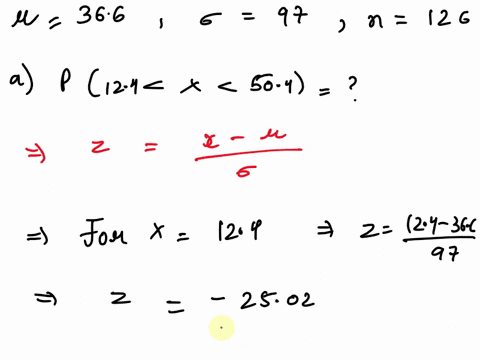 μ = 36.6 , σ = 97 , n = 126
a) P (12.4 < x < 50.4) = ?
⇒ z = (x - μ)/σ
⇒ For x = 12.4 ⇒ z = (12.4-36.6/97
⇒ z = - 25.02